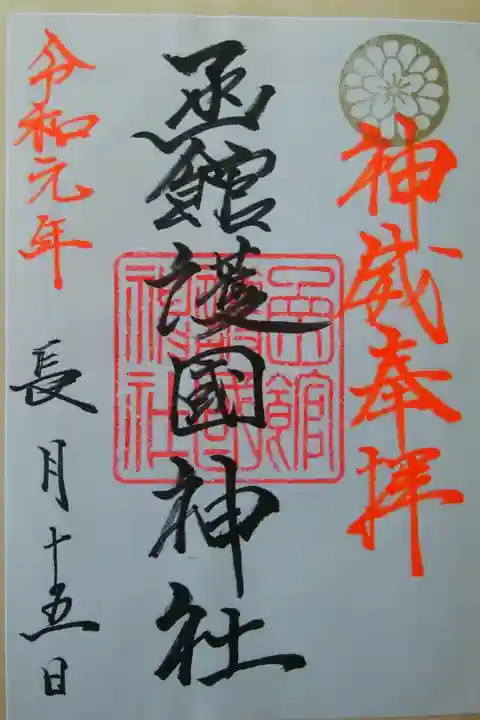 神威奉拝
函館護國神社
令和元年
長月十五日
函館護國神社